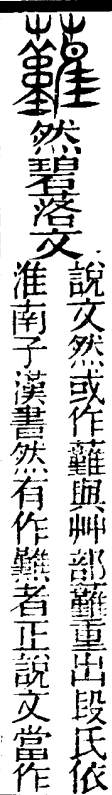 虌
然碧落文
說文然或作虌與艸部虌重出段氏依
淮南子漢書然有作難者正說文當作